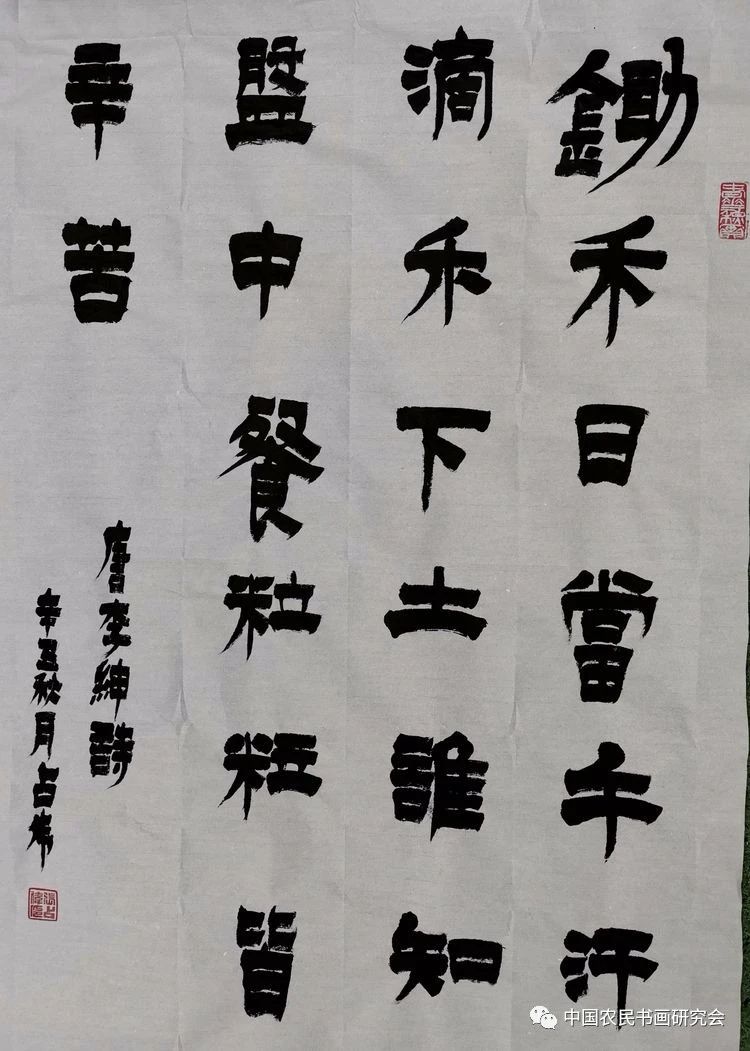 鋤禾日當午汗
滴禾下土誰知
盤中餐粒粒皆
辛苦
唐李紳詩
辛丑秋月占
中国农民书画研究会